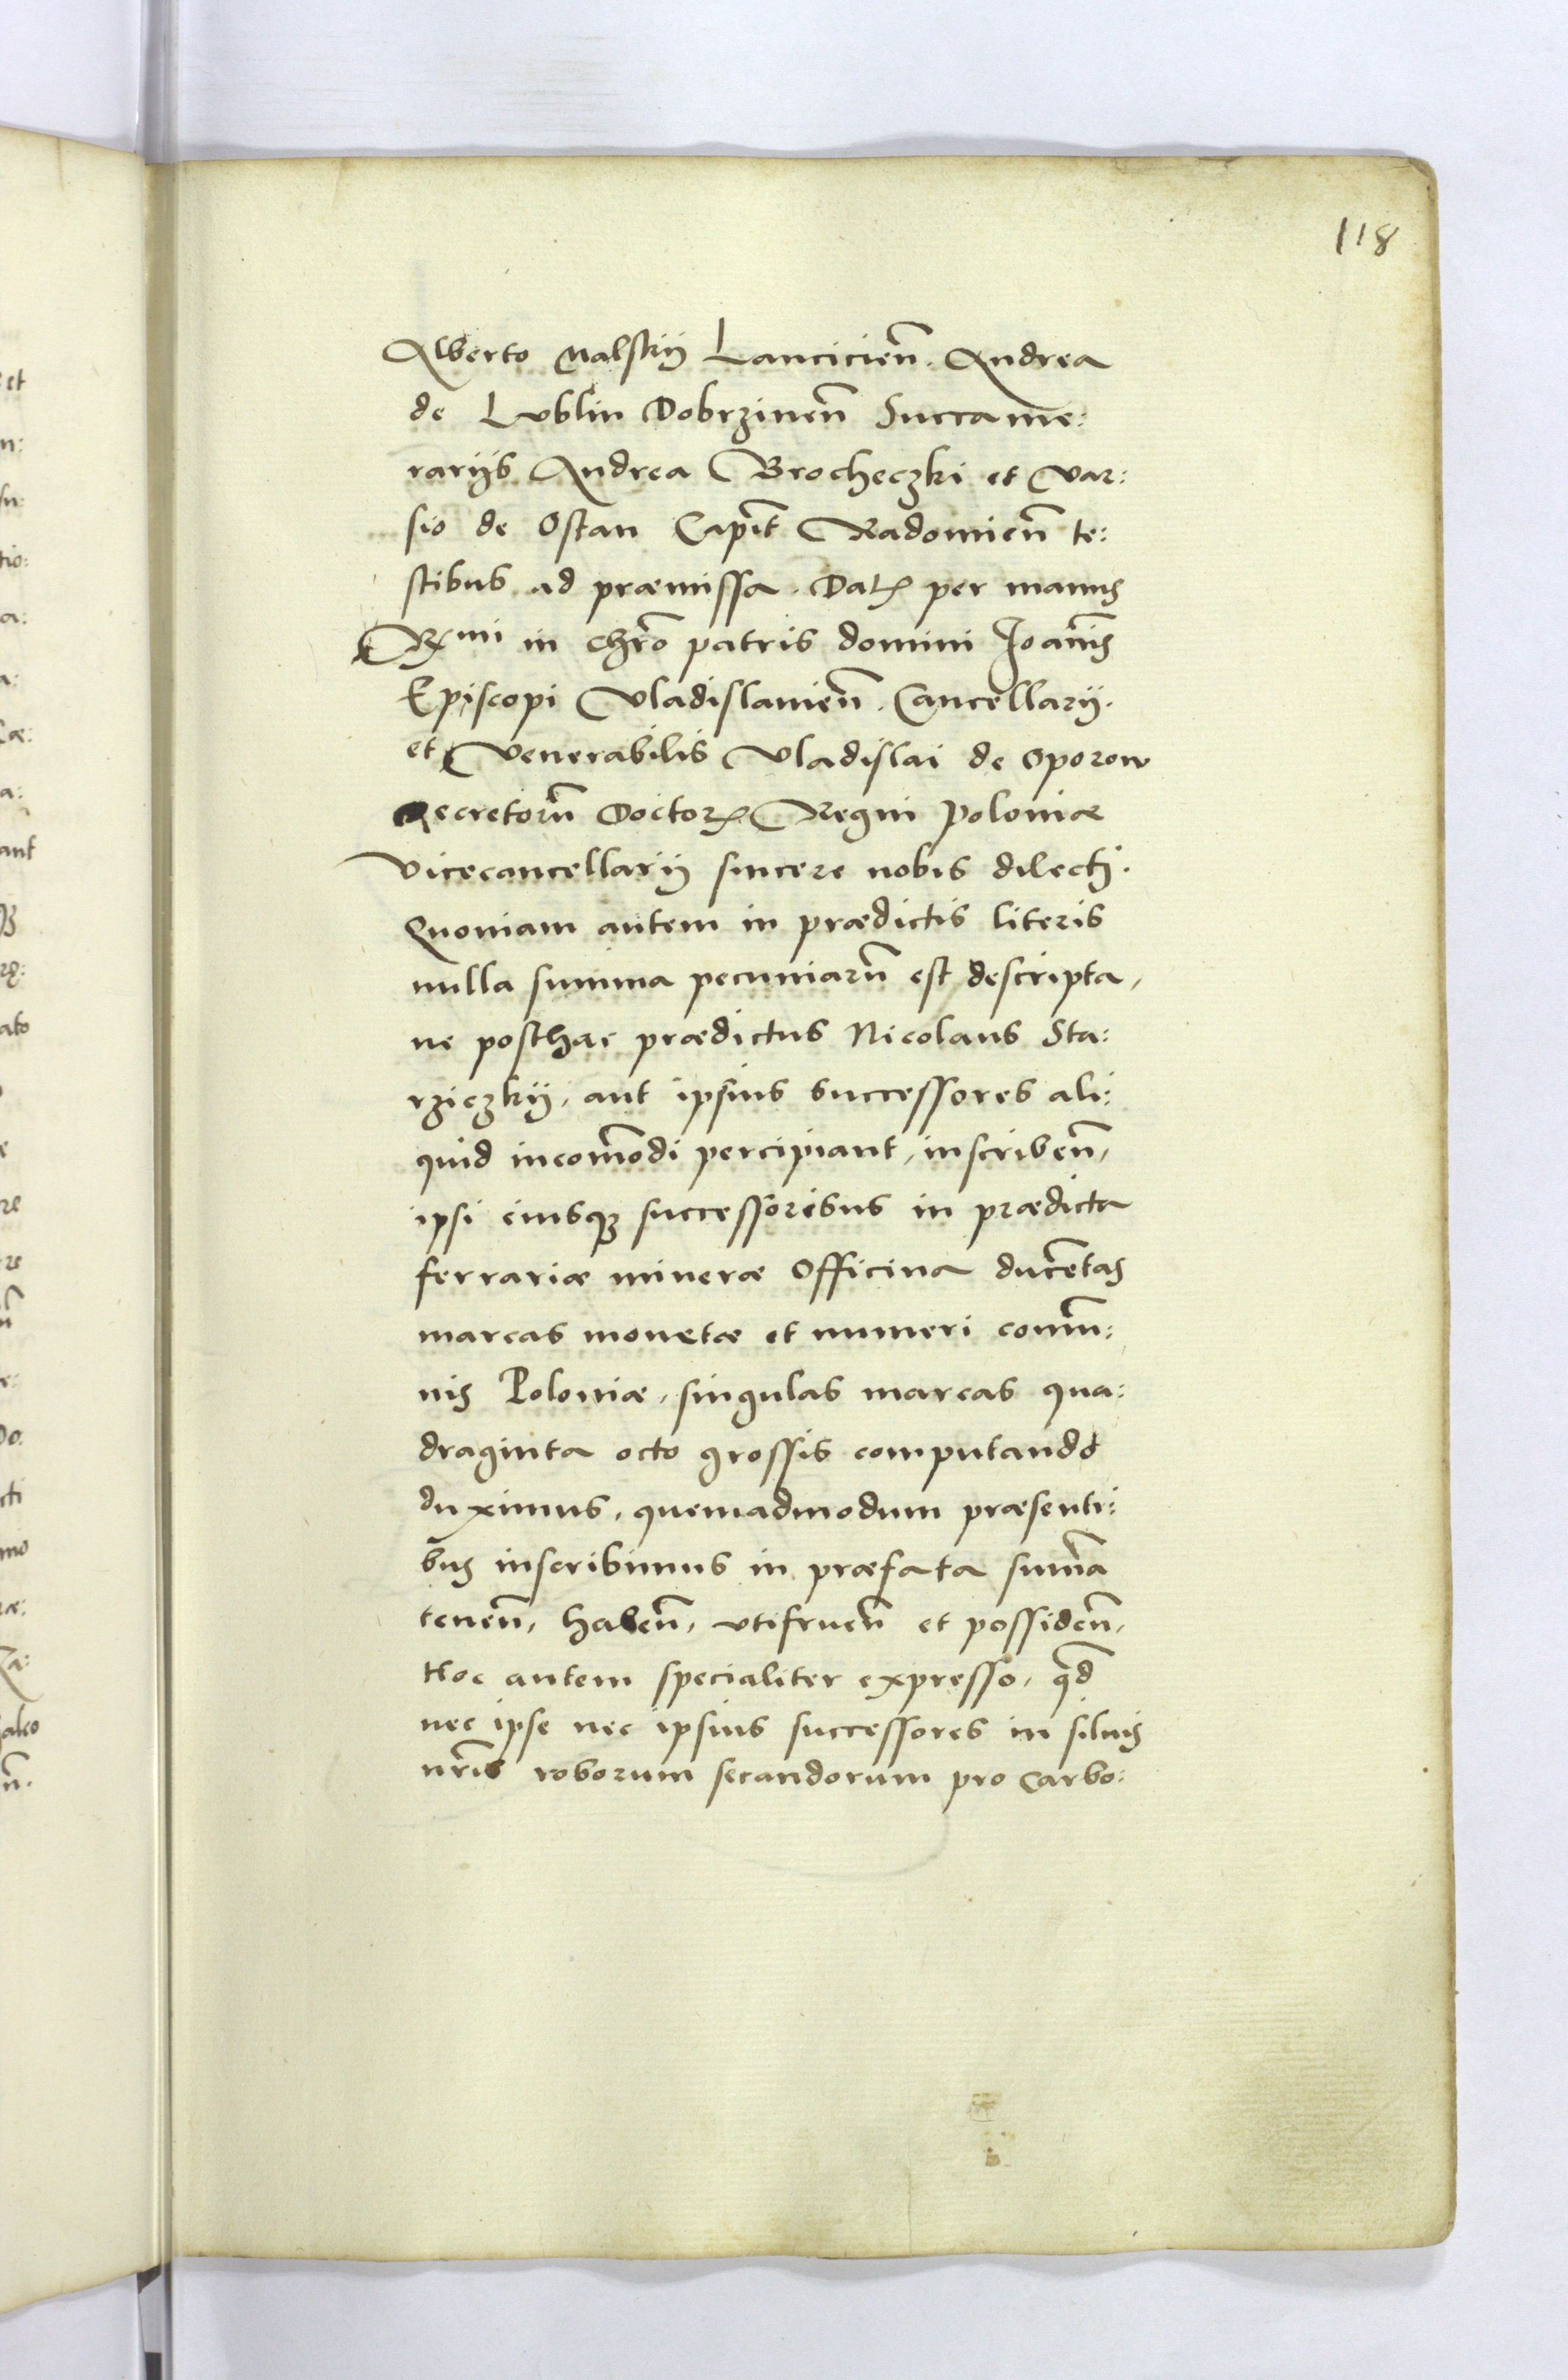 118
Alberto Malskij Lancicieñ. Andrea
de Lublin Dobrzineñ Succame:
rarijs Andrea Brocheczki et War:
sio de Ostan Capit̃ Radomieñ te:
stibus ad præmissa. Datꝭ per manus
Rmi in chr̃o patris domini Joañis
Episcopi Vladislauieñ. Cancellarij.
et Venerabilis Vladislai de Oporow
Decretorũ Doctorꝭ Regni Poloniæ
Vicecancellarij sincere nobis dilecti.
Quoniam autem in prædictis literis
nulla summa pecuniarũ est descripta,
ne posthac prædictus Nicolaus Sta:
rziczkij, aut ipsius successores ali:
quid incom̃odi percipiant, inscribeñ,
ipsi eiusqꝫ successoribus in prædicta
ferrariæ mineræ Officina ducẽtas
marcas monetæ et numeri com̃u:
nis Poloniæ, singulas marcas qua:
draginta octo grossis computando
duximus, quemadmodum præsenti:
bus inscribimus in præfata sum̃a
teneñ, habeñ, vtifrueñ et possideñ,
Hoc autem specialiter expresso, qd̃
nec ipse nec ipsius successores in siluis
nr̃is roborum secandorum pro carbo: